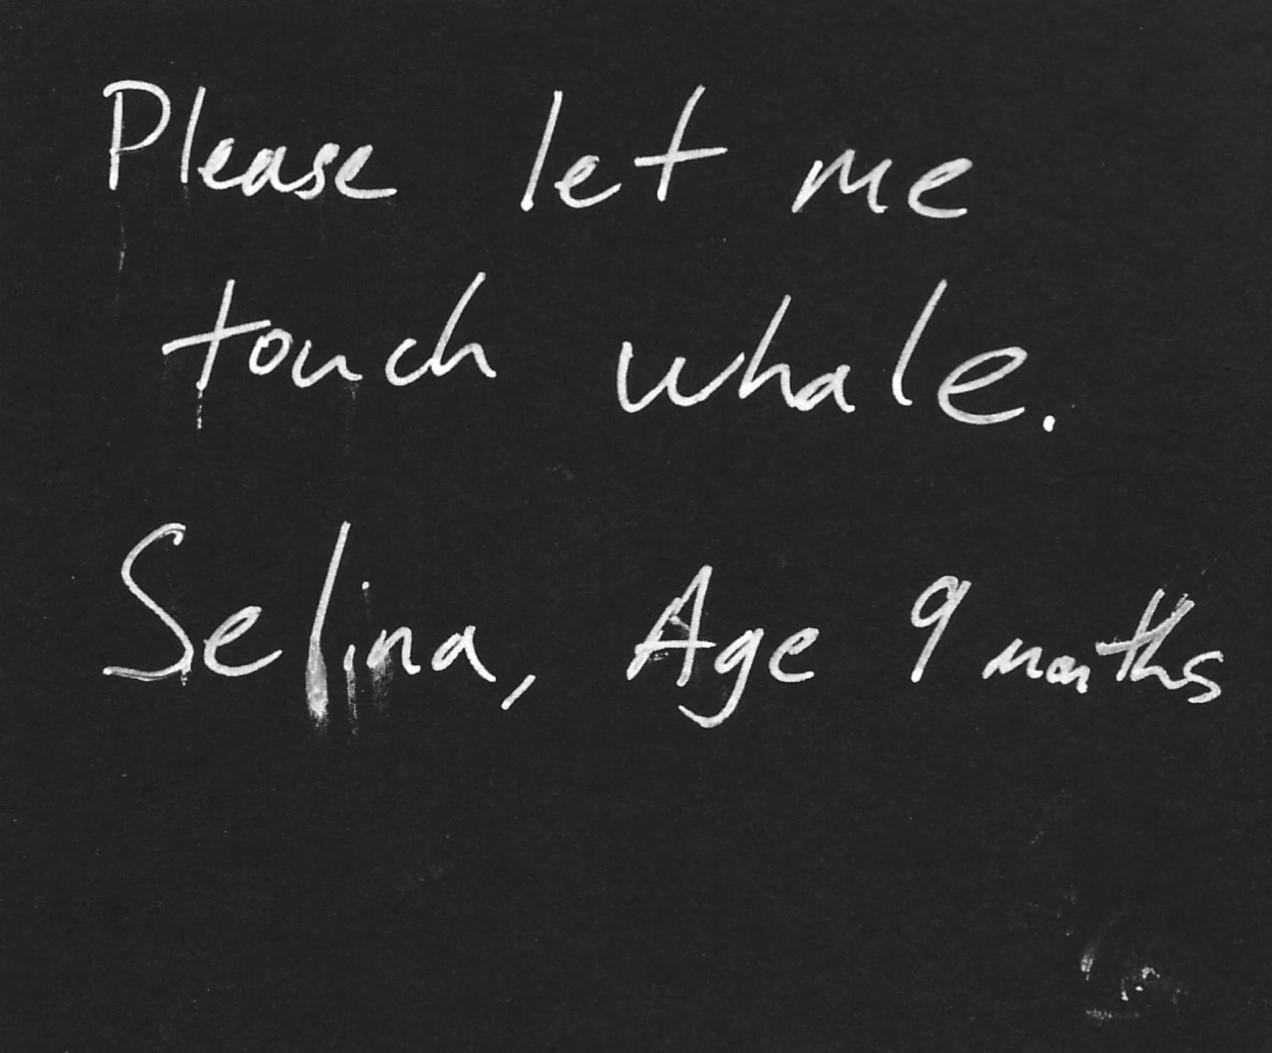 Please let me
touch whale.
Selina, Age 9 months